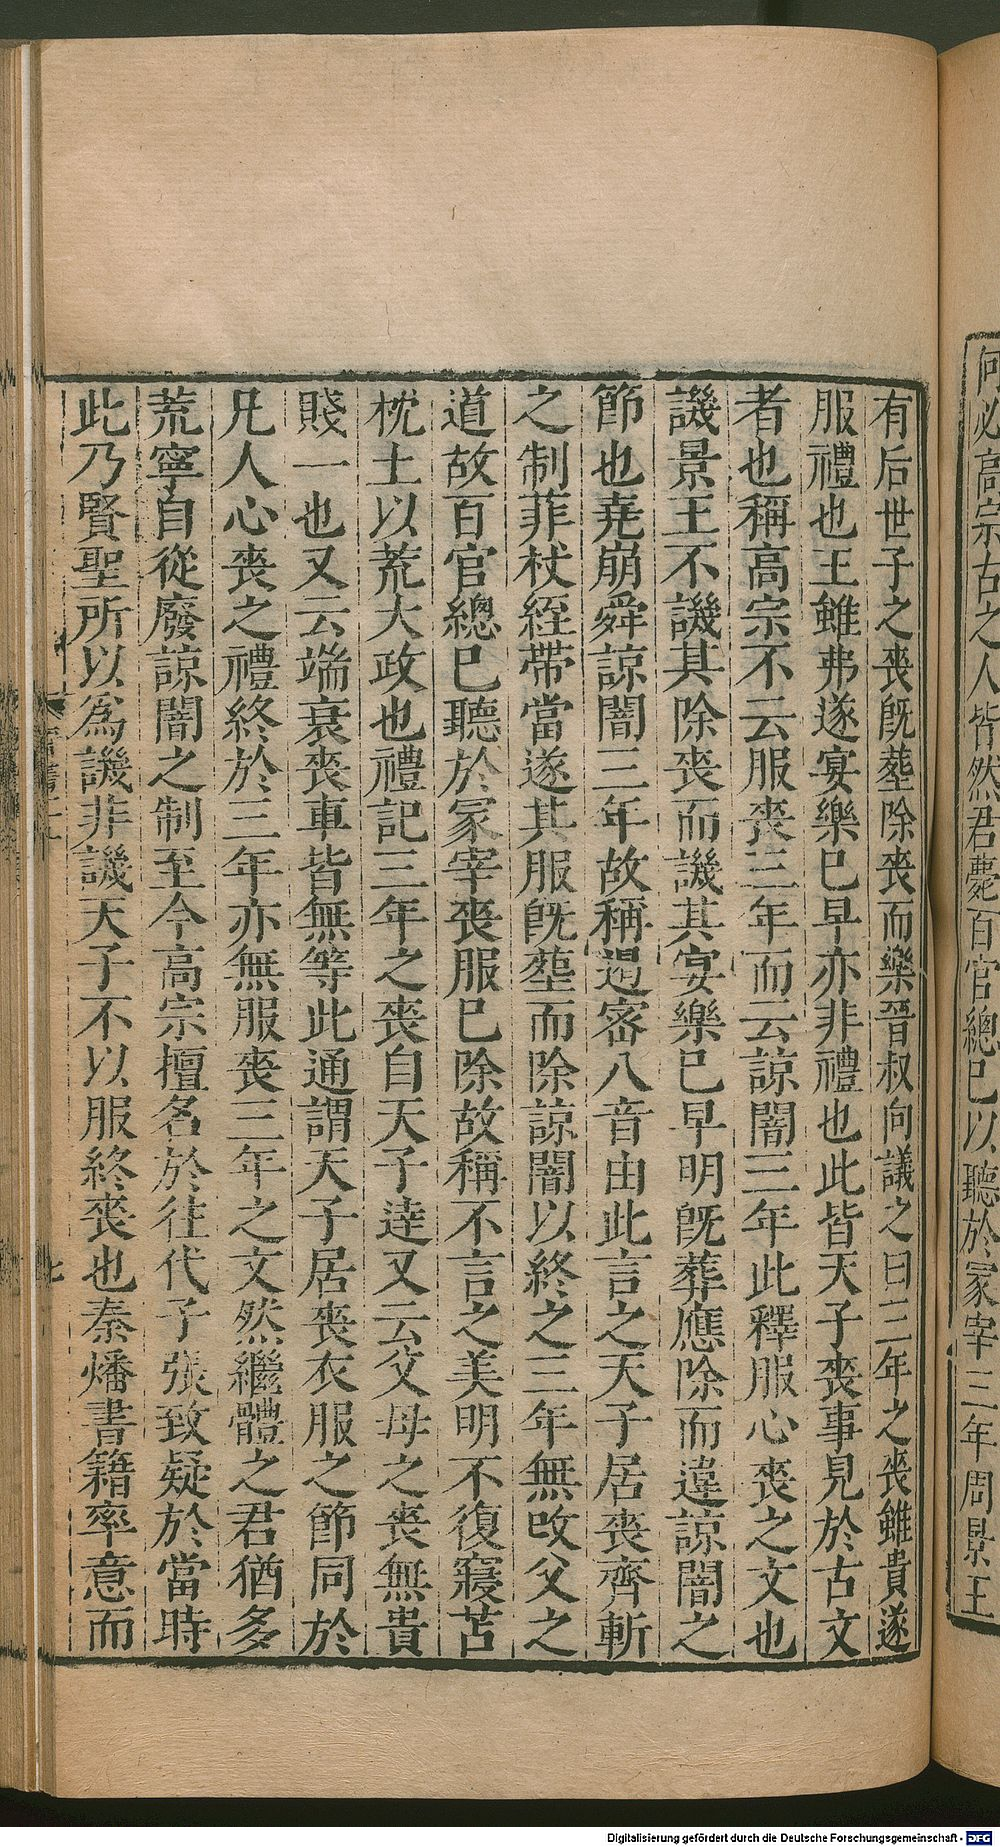 何必高宗古之人皆然君薨百官總已以聽於冢宰三年周景王
有后世子之喪既塟除喪而樂晉叔向議之曰三年之喪雖貴遂
服禮也王雖弗遂宴樂已早亦非禮也此皆天子喪事見於古文
者也稱高宗不云服喪三年而云諒闇三年此釋服心喪之文也
譏景王不譏其除喪而譏其宴樂已早明既葬應除而違諒闇之
節也堯崩舜諒闇三年故稱遏密八音由此言之天子居喪齊斬
之制菲杖絰帶當遂其服既塟而除諒闇以終之三年無改父之
道故百官總已聽於冢宰喪服已除故稱不言之美明不復寢苫
枕土以荒大政也禮記三年之喪自天子逹又云父母之喪無貴
賤一也又云端衰喪車皆無等此通謂天子居喪衣服之節同於
凡人心喪之禮終於三年亦無服喪三年之文然繼體之君猶多
荒寧自從廢諒闇之制至今高宗擅名於往代子張致疑於當時
此乃賢聖所以為譏非譏天子不以服終喪也秦燔書籍率意而
Digitalisierung gefördert durch die Deutsche Forschungsgemeinschaft - DFG